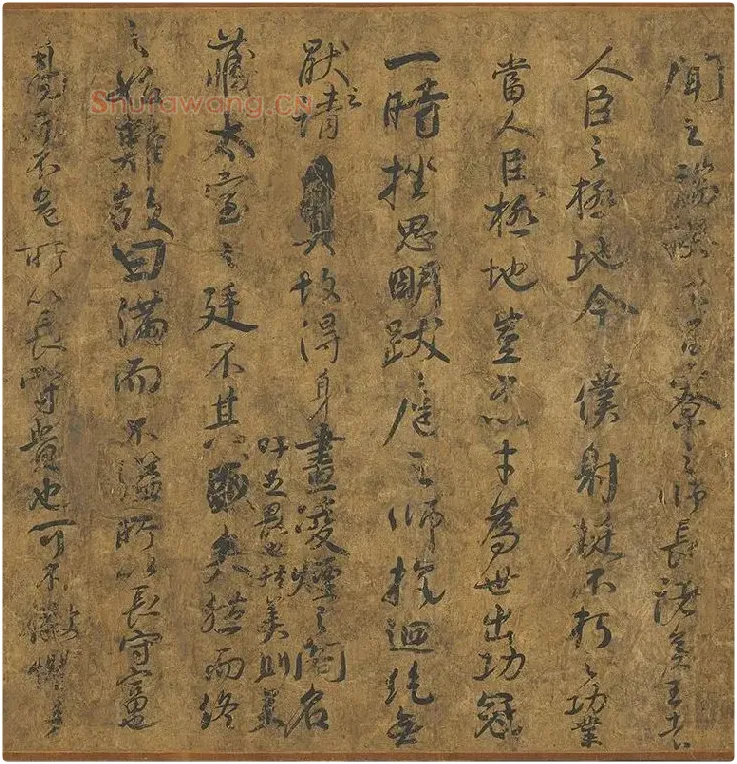 聞之端揆者百寮之師長諸侯王者
人臣之極地今僕射挺不朽之功業
當人臣極地豈不以才為世出功冠
一時挫思明跋扈之師抗迴紇無
厭之請故得身畫凌煙之閣名
吁足畏也然美則美
藏太室之廷不其矣然而終
之始難故曰滿而不溢所以長守富也
高而不危所以長守貴也可不儆懼乎
Shufawang.CN